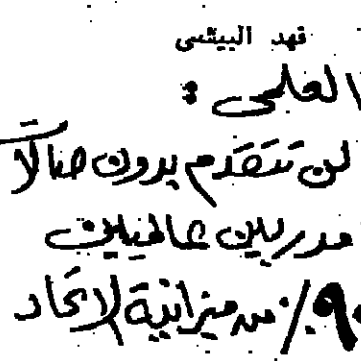 فهد البيشي
العلمي :
لن تتقدم بدون صالات
مدربين عالميين
٩٠٪ من ميزانية الاتحاد